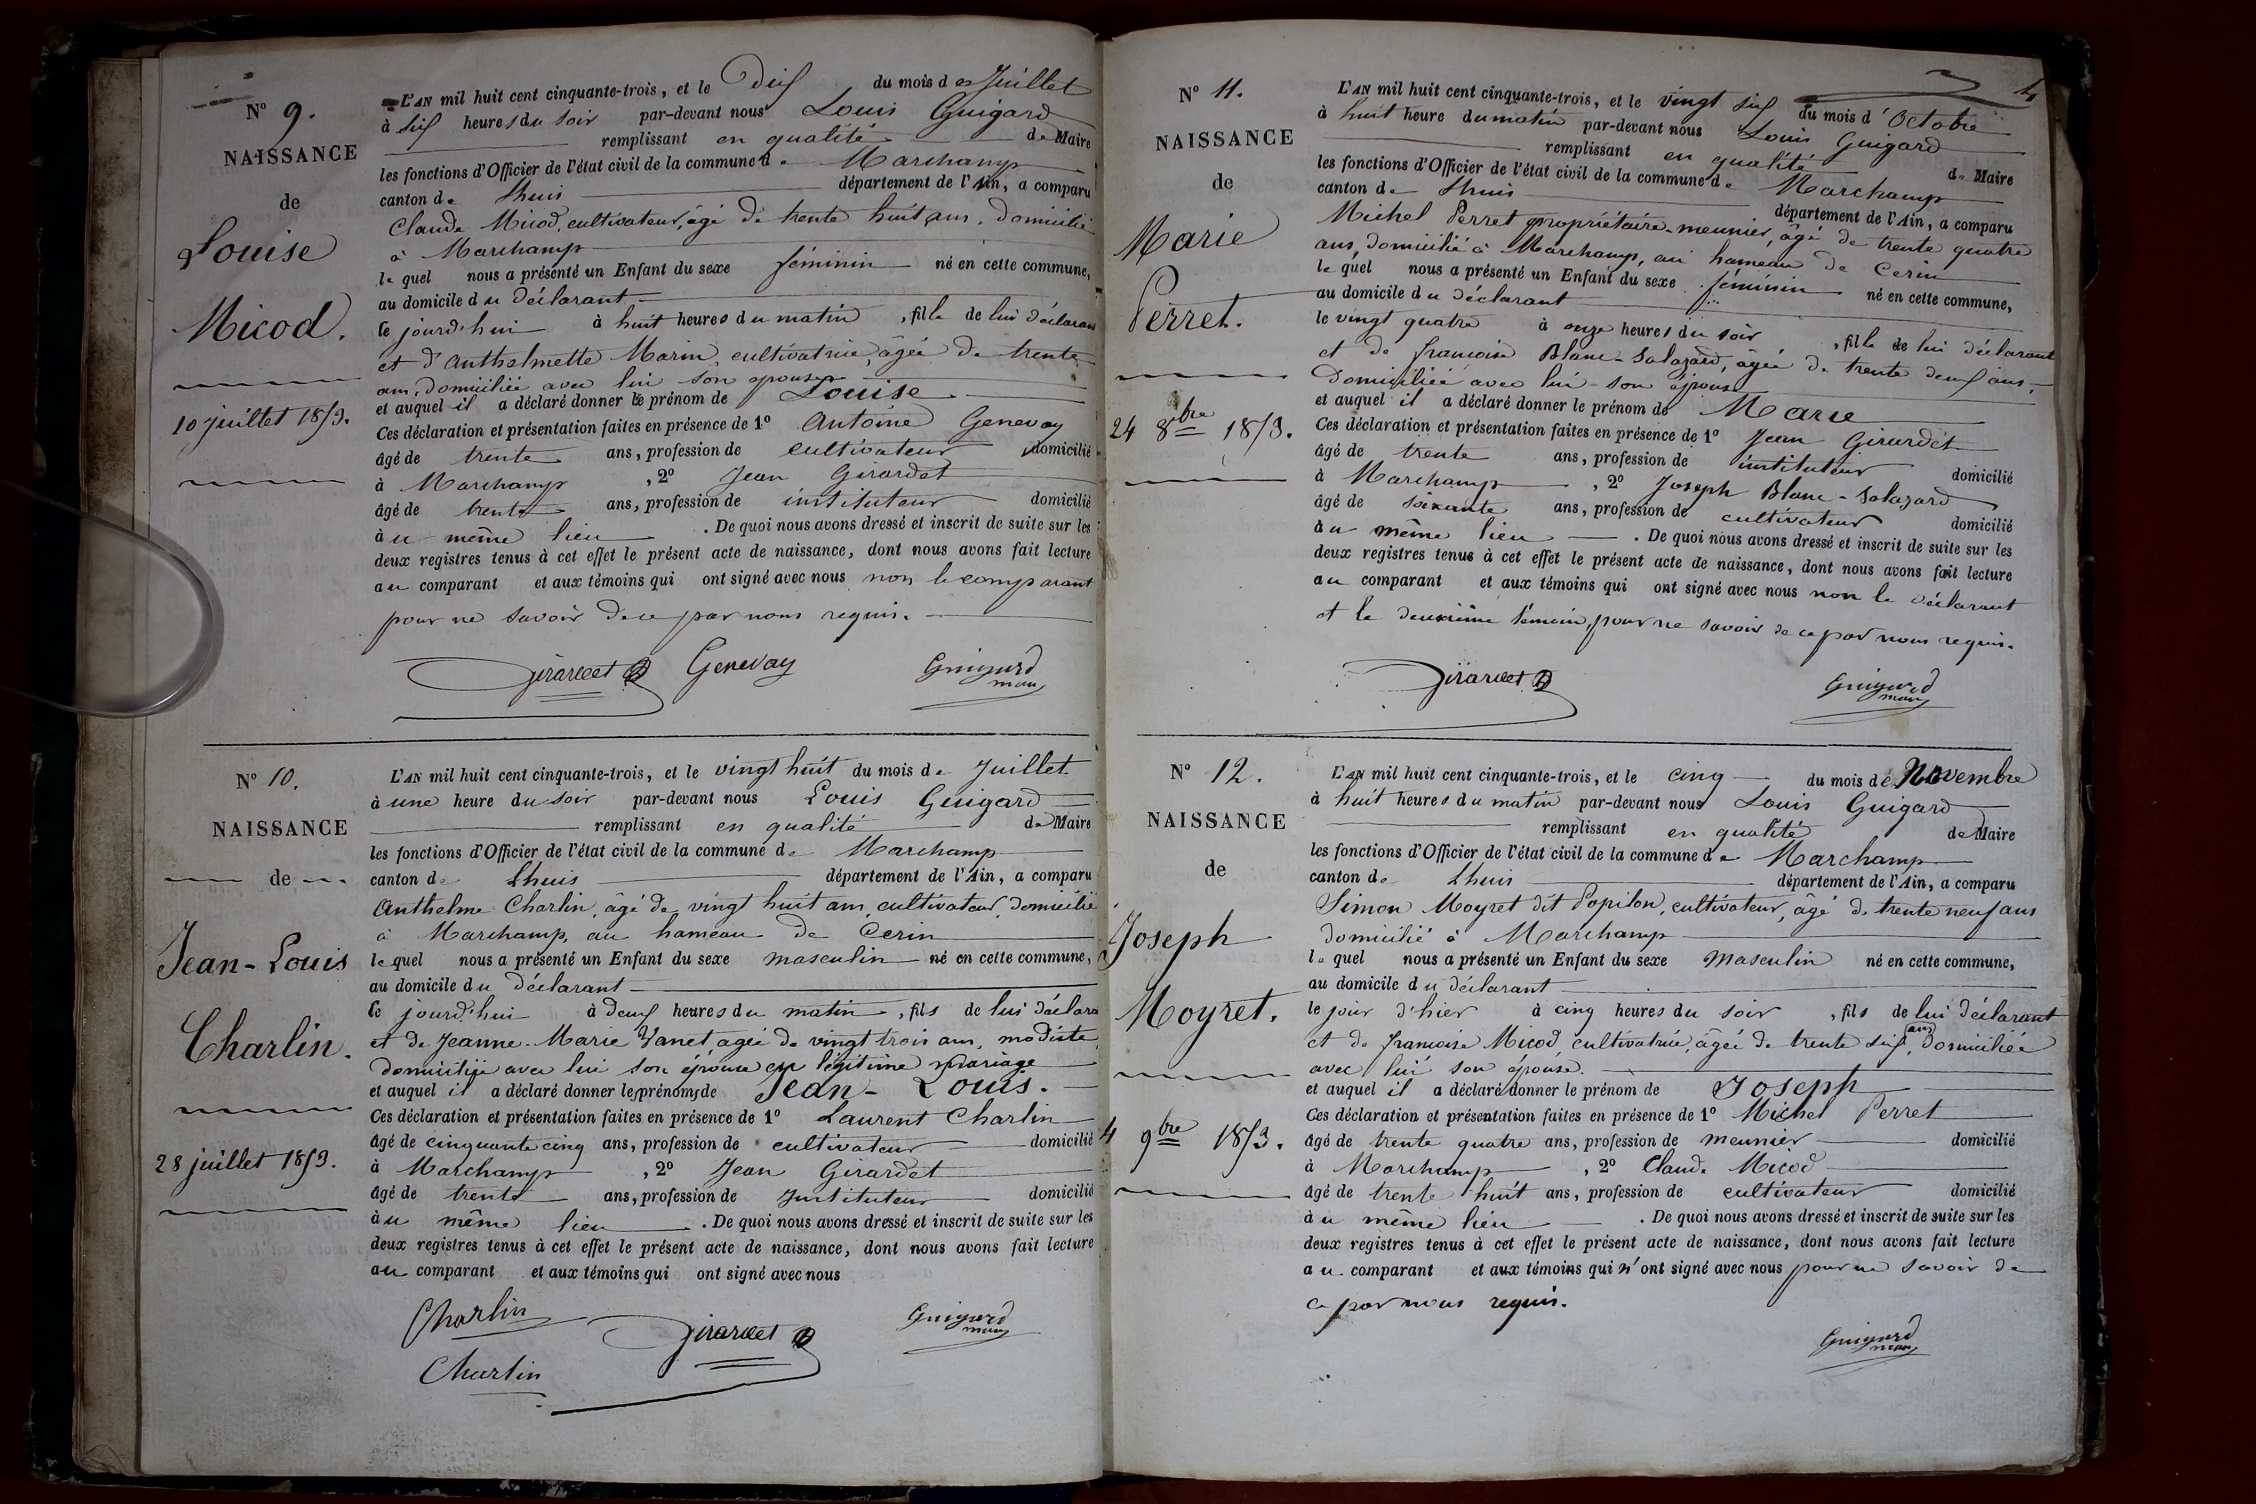 N° 9.
NAISSANCE
de
Louise
Micod.
10 juillet 1853.
L'AN mil huit cent cinquante-trois, et le dix du mois de Juillet
à six heures du soir par-devant nous Louis Guigard
remplissant en qualité de Maire
les fonctions d'Officier de l'état civil de la commune de Marchamp
canton de Lhuis département de l'Ain, a comparu
Claude Micod, cultivateur, âgé de trente huit ans, domicilié
à Marchamp
lequel nous a présenté un Enfant du sexe féminin né en cette commune,
au domicile du déclarant
ce jourd'hui à huit heures du matin, fille de lui déclarant
et d'Anthelmette Marin, cultivatrice, âgée de trente
ans, domiciliée avec lui son épouse
et auquel il a déclaré donner le prénom de Louise
Ces déclaration et présentation faites en présence de 1° Antoine Genevay
âgé de trente ans, profession de cultivateur domicilié
à Marchamp, 2° Jean Girardet
âgé de trente ans, profession de instituteur domicilié
au même lieu. De quoi nous avons dressé et inscrit de suite sur les
deux registres tenus à cet effet le présent acte de naissance, dont nous avons fait lecture
au comparant et aux témoins qui ont signé avec nous non le comparant
pour ne savoir de ce par nous requis.
Girardet Genevay Guigard
maire
N° 10.
NAISSANCE
de
Jean-Louis
Charlin.
28 juillet 1853.
L'AN mil huit cent cinquante-trois, et le vingt huit du mois de Juillet
à une heure du soir par-devant nous Louis Guigard
remplissant en qualité de Maire
les fonctions d'Officier de l'état civil de la commune de Marchamp
canton de Lhuis département de l'Ain, a comparu
Anthelme Charlin, âgé de vingt huit ans, cultivateur, domicilié
à Marchamp, au hameau de Cerin
lequel nous a présenté un Enfant du sexe masculin né en cette commune,
au domicile du déclarant
ce jourd'hui à deux heures du matin, fils de lui déclara
et de Jeanne-Marie Vanet agée de vingt trois ans, modiste
domiciliée avec lui son épouse en légitime mariage
et auquel il a déclaré donner les prénoms de Jean-Louis.
Ces déclaration et présentation faites en présence de 1° Laurent Charlin
âgé de cinquante cinq ans, profession de cultivateur domicilié
à Marchamp, 2° Jean Girardet
âgé de trente ans, profession de Instituteur domicilié
au même lieu. De quoi nous avons dressé et inscrit de suite sur les
deux registres tenus à cet effet le présent acte de naissance, dont nous avons fait lecture
au comparant et aux témoins qui ont signé avec nous
Charlin Girardet Guigard
maire
Charlin
4
N° 11.
NAISSANCE
de
Marie
Perret.
24 8bre 1853.
L'AN mil huit cent cinquante-trois, et le vingt six du mois d'Octobre
à huit heure du matin par-devant nous Louis Guigard
remplissant en qualité de Maire
les fonctions d'Officier de l'état civil de la commune de Marchamp
canton de Lhuis département de l'Ain, a comparu
Michel Perret propriétaire-meunier, âgé de trente quatre
ans, domicilié à Marchamp, au hameau de Cerin
lequel nous a présenté un Enfant du sexe féminin né en cette commune,
au domicile du déclarant
le vingt quatre à onze heures du soir, fille de lui déclarant
et de francoise Blanc-Salazard, âgée de trente deux ans,
domiciliée avec lui son épouse
et auquel il a déclaré donner le prénom de Marie
Ces déclaration et présentation faites en présence de 1° Jean Girardet
âgé de trente ans, profession de instituteur domicilié
à Marchamp, 2° Joseph Blanc-Salazard
âgé de soixante ans, profession de cultivateur domicilié
au même lieu. De quoi nous avons dressé et inscrit de suite sur les
deux registres tenus à cet effet le présent acte de naissance, dont nous avons fait lecture
au comparant et aux témoins qui ont signé avec nous non le déclarant
et le deuxième témoin, pour ne savoir de ce par nous requis.
Girardet Guigard
maire
N° 12.
NAISSANCE
de
Joseph
Moyret.
4 9bre 1853.
L'AN mil huit cent cinquante-trois, et le cinq du mois de Novembre
à huit heures du matin par-devant nous Louis Guigard
remplissant en qualité de Maire
les fonctions d'Officier de l'état civil de la commune de Marchamp
canton de Lhuis département de l'Ain, a comparu
Simon Moyret dit Popilon, cultivateur, âgé de trente neuf ans
domicilié à Marchamp
lequel nous a présenté un Enfant du sexe Masculin né en cette commune,
au domicile du déclarant
le jour d'hier à cinq heures du soir, fils de lui déclarant
et de francoise Micod, cultivatrice, âgée de trente six ans, domiciliée
avec lui son épouse.
et auquel il a déclaré donner le prénom de Joseph
Ces déclaration et présentation faites en présence de 1° Michel Perret
âgé de trente quatre ans, profession de meunier domicilié
à Marchamp, 2° Claude Micod
âgé de trente huit ans, profession de cultivateur domicilié
au même lieu. De quoi nous avons dressé et inscrit de suite sur les
deux registres tenus à cet effet le présent acte de naissance, dont nous avons fait lecture
au comparant et aux témoins qui n'ont signé avec nous pour ne savoir de
ce par nous requis.
Guigard
maire